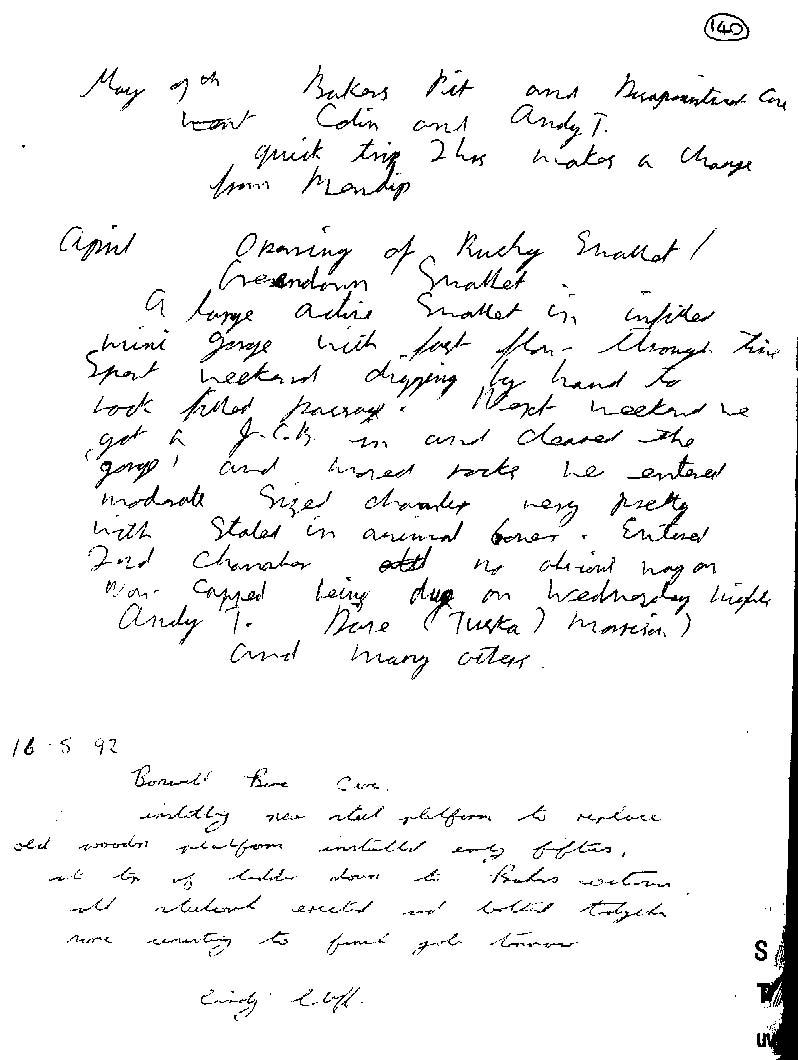 140
May 9th Bakers Pit and Disapointment Cave
went Colin and Andy T.
quick trip 2 hrs makes a change
from Mendip
April Opening of Rucky Swallet /
Greendown Swallet
A large active Swallet in infilled
mini gorge with fast flow through time
Spent weekend digging by hand to
rock filled passage. Next weekend we
got a J.C.B. in and cleared the
'gorge' and moved rocks we entered
moderate Sized chamber very pretty
with Stoled in animal bones. Entered
2nd Chamber no obvious way on
Now Capped being dug on Wednesday nights
Andy T. Dave (Tuska) Morrison)
and many others.
16 5 92
Cave.
new steel platform to replace
old wooden platform installed early fifties,
at top of ladder down to Bakers
old steelwork erected and bolted together
to finish job tomorrow
S
T
UV